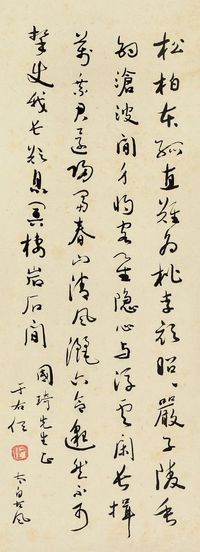 松柏本孤直難為桃李顏昭昭嚴子陵垂
釣滄波間身將客星隱心與浮雲閑長揖
萬乘君還歸富春山清風灑六合邈然不可
攀使我長歎息冥棲巖石間
國琦先生正
于右任
太白古風